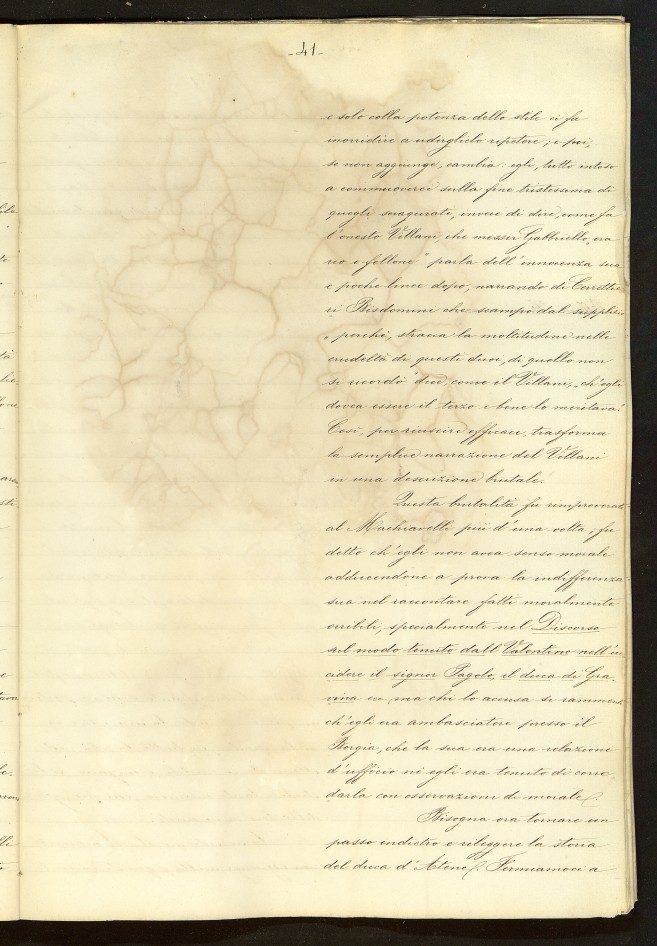 -41-
e solo colla potenza dello stile ci fa
inorridire a udirglielo ripetere; e poi,
se non aggiunge, cambia egli, tutto inteso
a commuoverci sulla fine tristissima di
quegli sciagurati, invece di dire, come fa
l'onesto Villani, che messer Gabbriello, era
reo e fellone" parla dell'innocenza sua
e poche linee dopo, narrando di Cerrettie
ri Bisdomini che scampò dal supplizio
„ perchè, stracca la moltitudine nelle
crudeltà di questi duoi, di quello non
si ricordò" dice, come il Villani, „ch'egli
dovea essere il terzo e bene lo meritava."
Così, per riuscire efficace, trasforma
la semplice narrazione del Villani
in una descrizione brutale.
Questa brutalità fu rimproverata
al Machiavelli più d'una volta; fu
detto ch'egli non avea senso morale
adducendone a prova la indifferenza
sua nel raccontare fatti moralmente
orribili, specialmente nel Discorso
sul modo tenuto dall Valentino nell'uc
cidere il signor Pagolo, il duca di Gra
vina ec, ma chi lo accusa si rammenti
ch'egli era ambasciatore presso il
Borgia, che la sua era una relazione
d'ufficio nè egli era tenuto di corre
darla con osservazioni di morale.
Bisogna ora tornare un
passo indietro e rileggere la storia
del duca d'Atene. Fermiamoci a